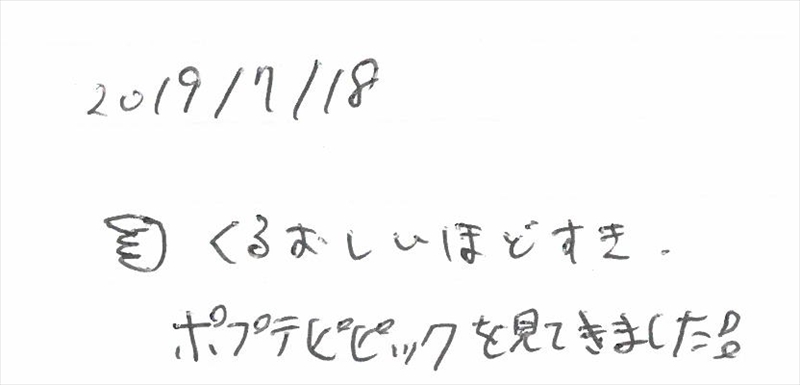 2019/7/18
くるおしいほどすき.
ポプテピピックを見てきました!!